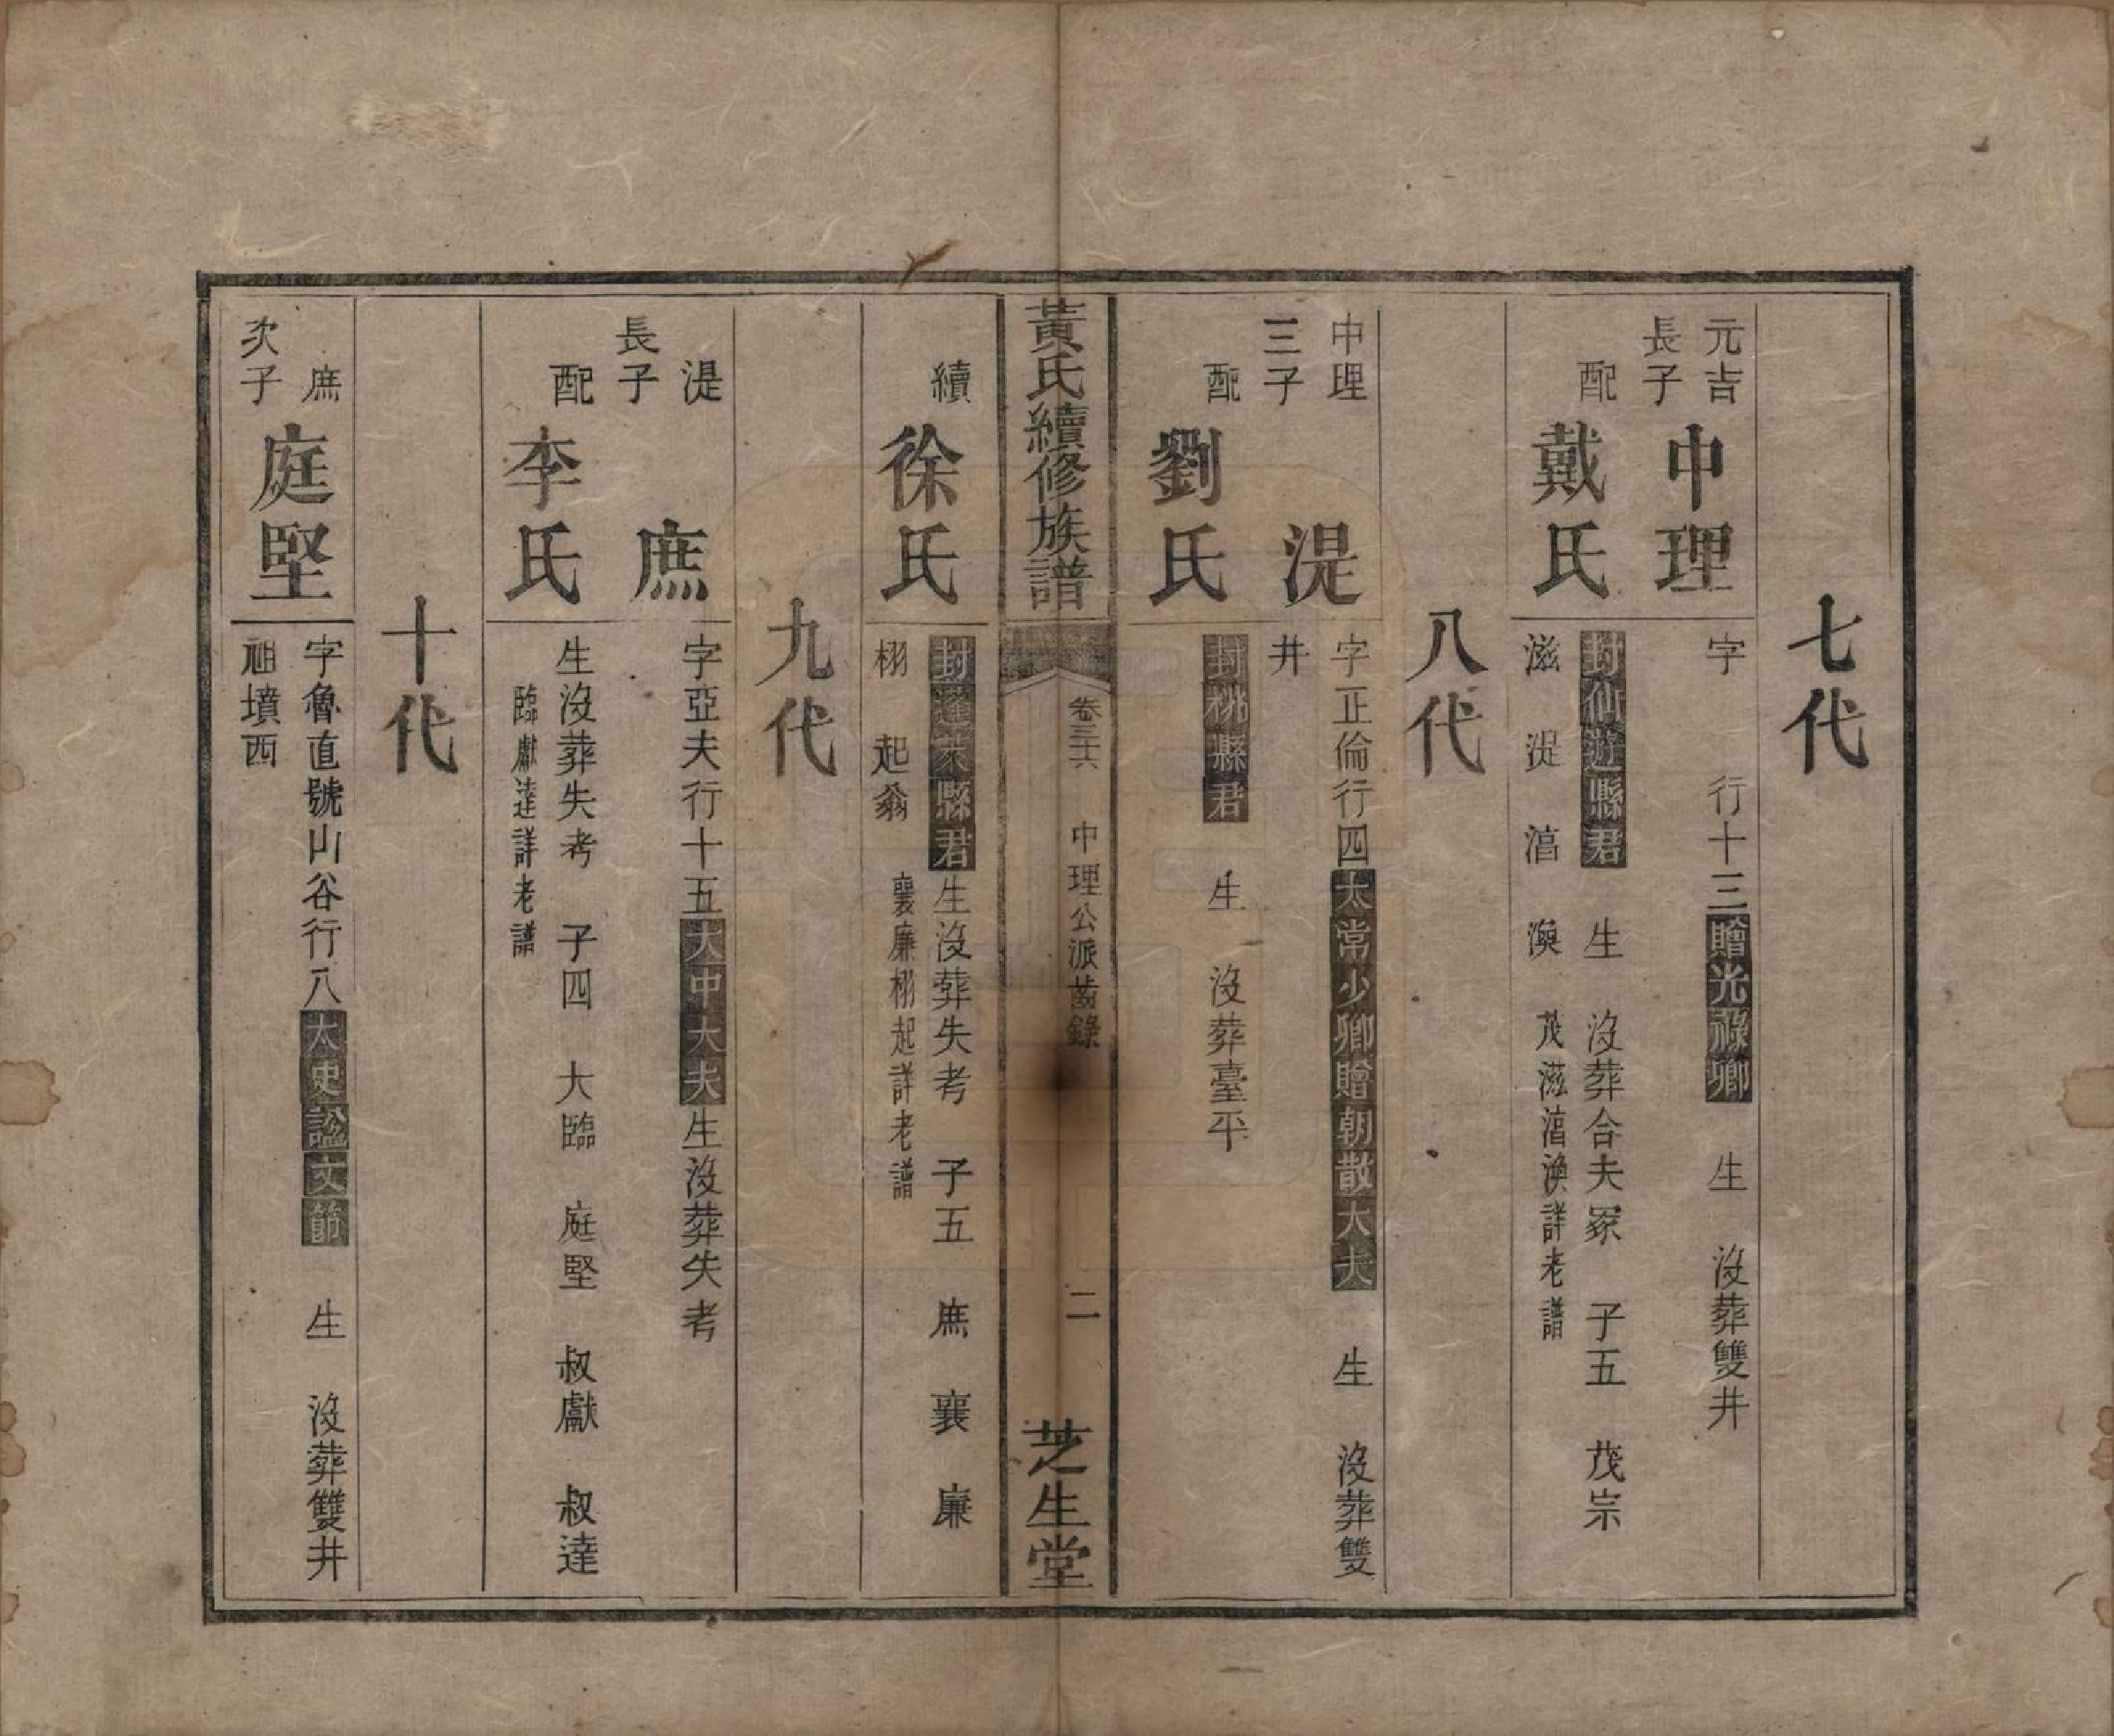 七代
元吉
長子
中理
字 行十三贈光祿卿 生 沒葬雙井
配
戴氏
封仙遊縣君 生 沒葬合夫冢 子五 茂宗
滋 湜 湻 渙 茂滋湻渙詳老譜
八代
中理
三子
湜
字正倫行四太常少卿贈朝散大夫 生 沒葬雙
井
配
劉氏
封桃縣君 生 沒葬臺平
黃氏續修族譜
卷三六 中理公派齒錄 二
芝生堂
續
徐氏
封蓬萊縣君生沒葬失考 子五 庶 襄 廉
栩 起翁 襄廉栩起詳老譜
九代
湜
長子
庶
字亞夫行十五大中大夫生沒葬失考
配
李氏
生沒葬失考 子四 大臨 庭堅 叔獻 叔達
臨獻達詳老譜
十代
庶
次子
庭堅
字魯直號山谷行八太史諡文節 生 沒葬雙井
祖墳西